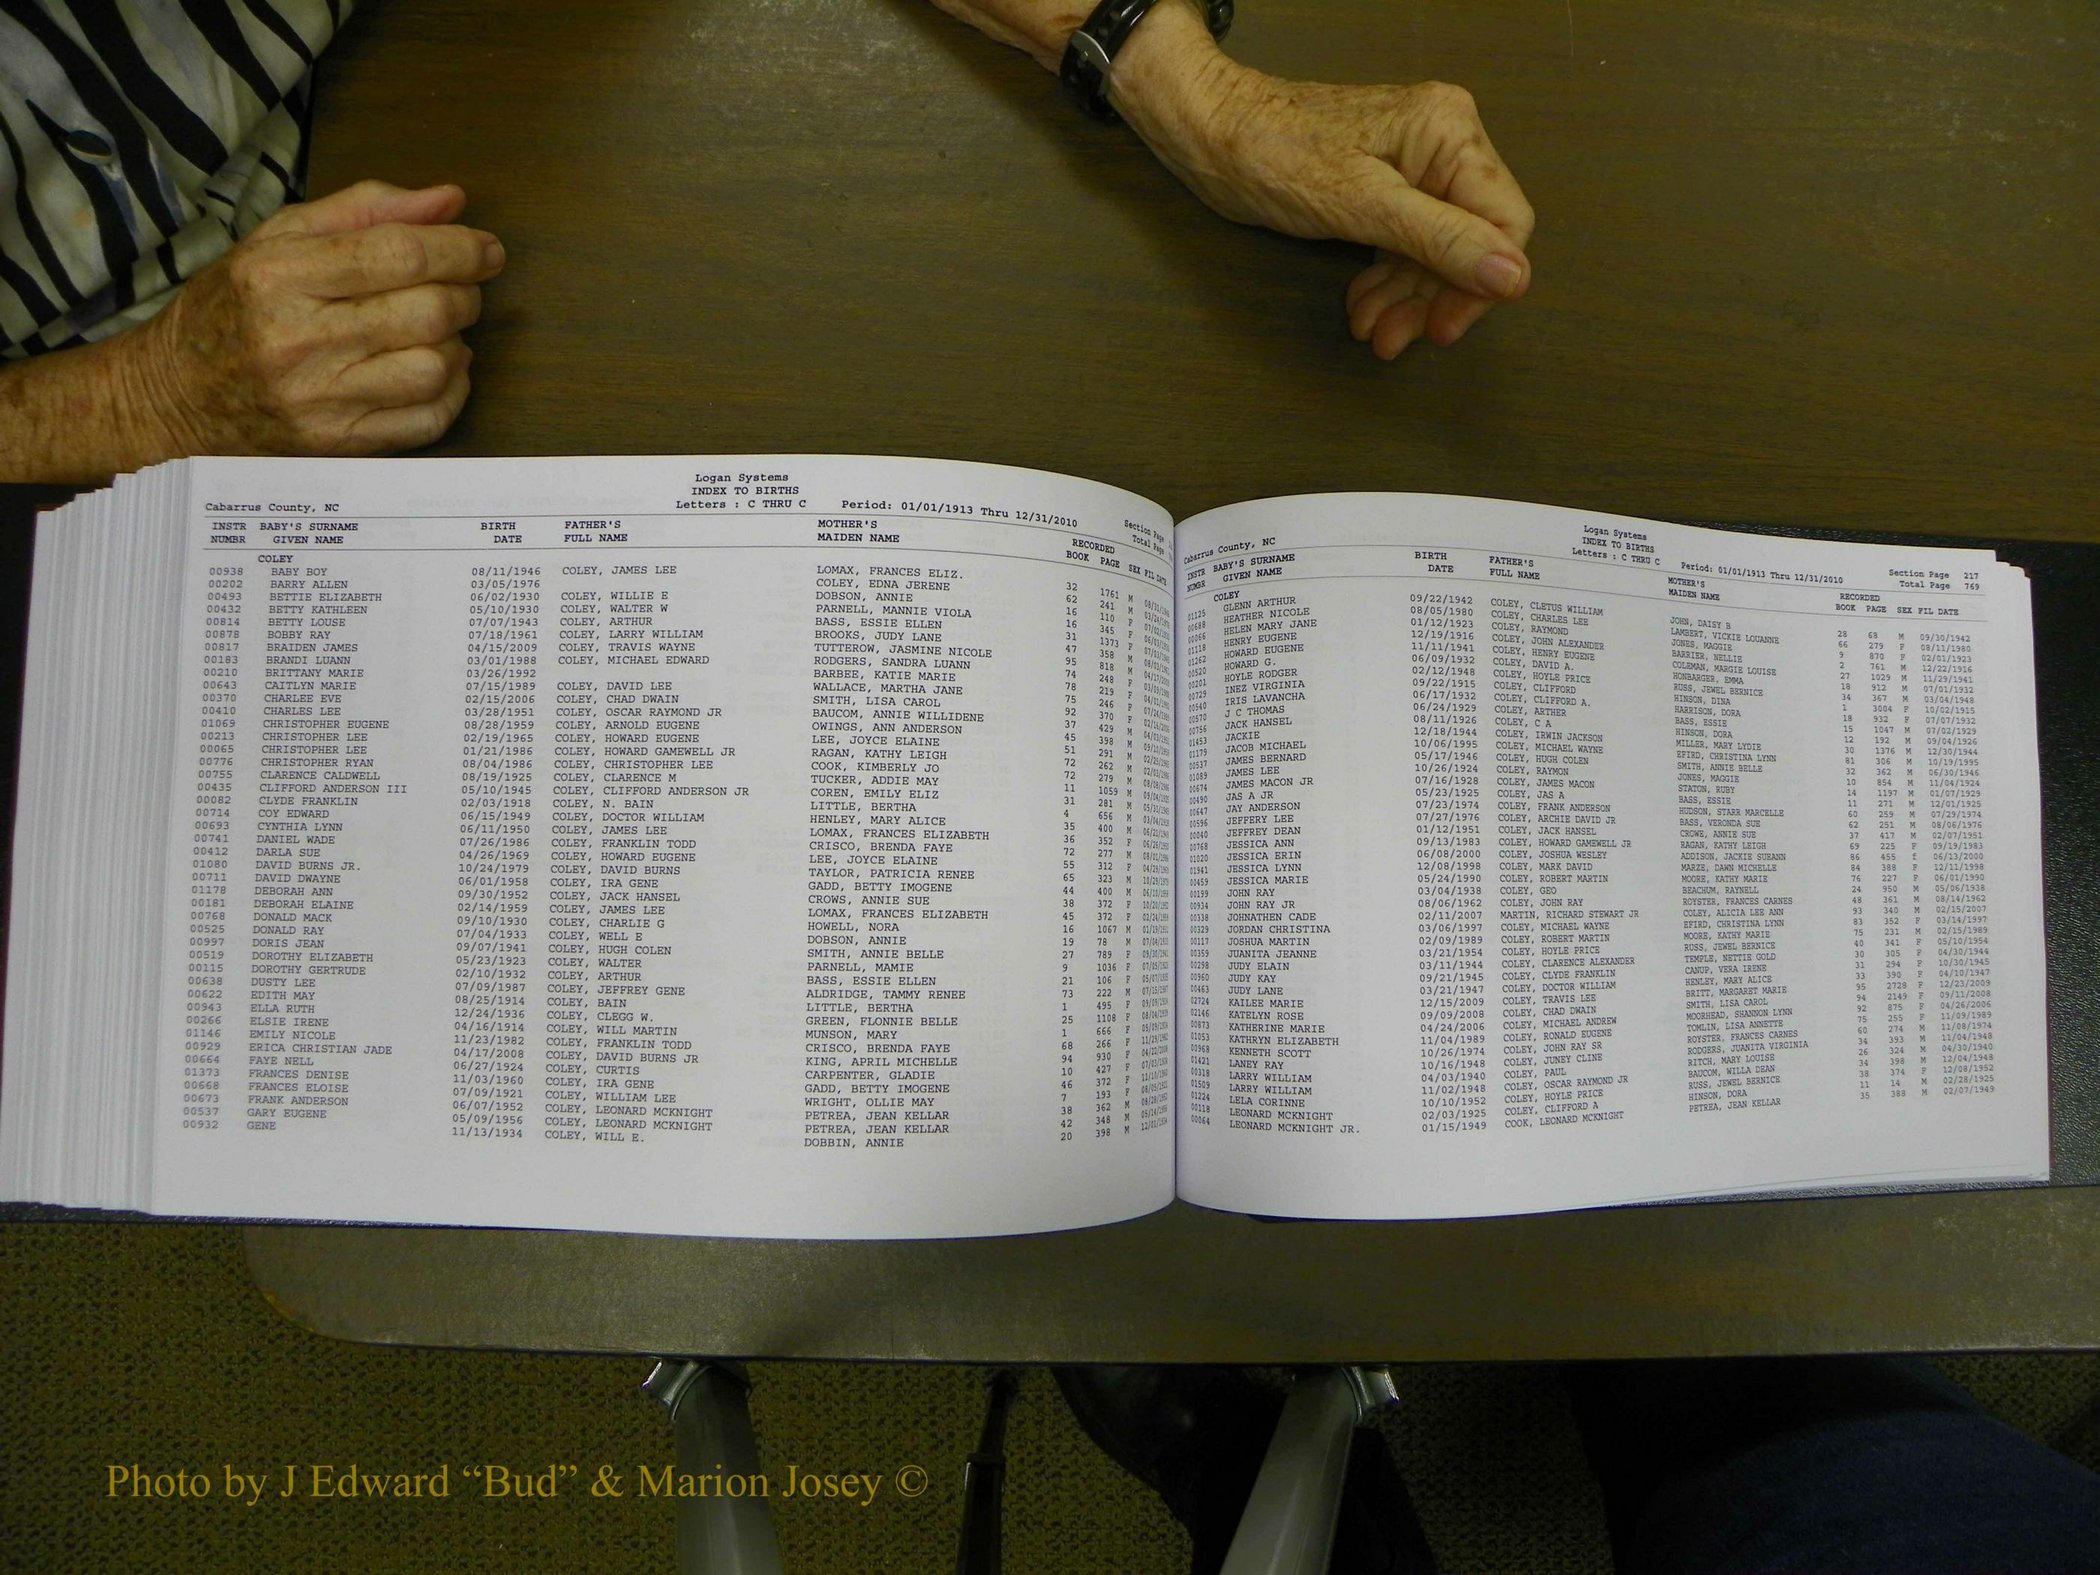 Logan Systems
INDEX TO BIRTHS
Cabarrus County, NC Letters : C THRU C Period: 01/01/1913 Thru 12/31/2010
Section Page
Total Page
INSTR BABY'S SURNAME BIRTH FATHER'S MOTHER'S RECORDED
NUMBR GIVEN NAME DATE FULL NAME MAIDEN NAME BOOK PAGE SEX FIL DATE
COLEY
00938 BABY BOY 08/11/1946 COLEY, JAMES LEE LOMAX, FRANCES ELIZ. 32 1761 M
00202 BARRY ALLEN 03/05/1976 COLEY, EDNA JERENE 62 241 M
00493 BETTIE ELIZABETH 06/02/1930 COLEY, WILLIE E DOBSON, ANNIE 16 110 F
00432 BETTY KATHLEEN 05/10/1930 COLEY, WALTER W PARNELL, MANNIE VIOLA 16 345 F
00814 BETTY LOUSE 07/07/1943 COLEY, ARTHUR BASS, ESSIE ELLEN 31 1373 F
00878 BOBBY RAY 07/18/1961 COLEY, LARRY WILLIAM BROOKS, JUDY LANE 47 358 M
00817 BRAIDEN JAMES 04/15/2009 COLEY, TRAVIS WAYNE TUTTEROW, JASMINE NICOLE 95 818 M
00183 BRANDI LUANN 03/01/1988 COLEY, MICHAEL EDWARD RODGERS, SANDRA LUANN 74 248 F
00210 BRITTANY MARIE 03/26/1992 BARBEE, KATIE MARIE 78 219 F
00643 CAITLYN MARIE 07/15/1989 COLEY, DAVID LEE WALLACE, MARTHA JANE 75 246 F
00370 CHARLEE EVE 02/15/2006 COLEY, CHAD DWAIN SMITH, LISA CAROL 92 370 F
00410 CHARLES LEE 03/28/1951 COLEY, OSCAR RAYMOND JR BAUCOM, ANNIE WILLIDENE 37 429 M
01069 CHRISTOPHER EUGENE 08/28/1959 COLEY, ARNOLD EUGENE OWINGS, ANN ANDERSON 45 398 M
00213 CHRISTOPHER LEE 02/19/1965 COLEY, HOWARD EUGENE LEE, JOYCE ELAINE 51 291 M
00065 CHRISTOPHER LEE 01/21/1986 COLEY, HOWARD GAMEWELL JR RAGAN, KATHY LEIGH 72 262 M
00776 CHRISTOPHER RYAN 08/04/1986 COLEY, CHRISTOPHER LEE COOK, KIMBERLY JO 72 279 M
00755 CLARENCE CALDWELL 08/19/1925 COLEY, CLARENCE M TUCKER, ADDIE MAY 11 1059 M
00435 CLIFFORD ANDERSON III 05/10/1945 COLEY, CLIFFORD ANDERSON JR COREN, EMILY ELIZ 31 281 M
00082 CLYDE FRANKLIN 02/03/1918 COLEY, N. BAIN LITTLE, BERTHA 4 656 M
00714 COY EDWARD 06/15/1949 COLEY, DOCTOR WILLIAM HENLEY, MARY ALICE 35 400 M
00693 CYNTHIA LYNN 06/11/1950 COLEY, JAMES LEE LOMAX, FRANCES ELIZABETH 36 352 F
00741 DANIEL WADE 07/26/1986 COLEY, FRANKLIN TODD CRISCO, BRENDA FAYE 72 277 M
00412 DARLA SUE 04/26/1969 COLEY, HOWARD EUGENE LEE, JOYCE ELAINE 55 312 F
01080 DAVID BURNS JR. 10/24/1979 COLEY, DAVID BURNS TAYLOR, PATRICIA RENEE 65 323 M
00711 DAVID DWAYNE 06/01/1958 COLEY, IRA GENE GADD, BETTY IMOGENE 44 400 M
01178 DEBORAH ANN 09/30/1952 COLEY, JACK HANSEL CROWS, ANNIE SUE 38 372 F
00181 DEBORAH ELAINE 02/14/1959 COLEY, JAMES LEE LOMAX, FRANCES ELIZABETH 45 372 F
00768 DONALD MACK 09/10/1930 COLEY, CHARLIE G HOWELL, NORA 16 1067 M
00525 DONALD RAY 07/04/1933 COLEY, WELL E DOBSON, ANNIE 19 78 M
00997 DORIS JEAN 09/07/1941 COLEY, HUGH COLEN SMITH, ANNIE BELLE 27 789 F
00519 DOROTHY ELIZABETH 05/23/1923 COLEY, WALTER PARNELL, MAMIE 9 1036 F
00115 DOROTHY GERTRUDE 02/10/1932 COLEY, ARTHUR BASS, ESSIE ELLEN 21 106 F
00638 DUSTY LEE 07/09/1987 COLEY, JEFFREY GENE ALDRIDGE, TAMMY RENEE 73 222 M
00622 EDITH MAY 08/25/1914 COLEY, BAIN LITTLE, BERTHA 1 495 F
00943 ELLA RUTH 12/24/1936 COLEY, CLEGG W. GREEN, FLONNIE BELLE 25 1108 F
00266 ELSIE IRENE 04/16/1914 COLEY, WILL MARTIN MUNSON, MARY 1 666 F
01146 EMILY NICOLE 11/23/1982 COLEY, FRANKLIN TODD CRISCO, BRENDA FAYE 68 266 F
00929 ERICA CHRISTIAN JADE 04/17/2008 COLEY, DAVID BURNS JR KING, APRIL MICHELLE 94 930 F
00664 FAYE NELL 06/27/1924 COLEY, CURTIS CARPENTER, GLADIE 10 427 F
01373 FRANCES DENISE 11/03/1960 COLEY, IRA GENE GADD, BETTY IMOGENE 46 372 F
00668 FRANCES ELOISE 07/09/1921 COLEY, WILLIAM LEE WRIGHT, OLLIE MAY 7 193 F
00673 FRANK ANDERSON 06/07/1952 COLEY, LEONARD MCKNIGHT PETREA, JEAN KELLAR 38 362 M
00537 GARY EUGENE 05/09/1956 COLEY, LEONARD MCKNIGHT PETREA, JEAN KELLAR 42 348 M
00932 GENE 11/13/1934 COLEY, WILL E. DOBBIN, ANNIE 20 398 M
Logan Systems
INDEX TO BIRTHS
Cabarrus County, NC Letters : C THRU C Period: 01/01/1913 Thru 12/31/2010
Section Page 217
Total Page 769
INSTR BABY'S SURNAME BIRTH FATHER'S MOTHER'S RECORDED
NUMBR GIVEN NAME DATE FULL NAME MAIDEN NAME BOOK PAGE SEX FIL DATE
COLEY
01125 GLENN ARTHUR 09/22/1942 COLEY, CLETUS WILLIAM JOHN, DAISY B 28 68 M 09/30/1942
00688 HEATHER NICOLE 08/05/1980 COLEY, CHARLES LEE LAMBERT, VICKIE LOUANNE 66 279 F 08/11/1980
00066 HELEN MARY JANE 01/12/1923 COLEY, RAYMOND JONES, MAGGIE 9 870 F 02/01/1923
01118 HENRY EUGENE 12/19/1916 COLEY, JOHN ALEXANDER BARRIER, NELLIE 2 761 M 12/22/1916
01262 HOWARD EUGENE 11/11/1941 COLEY, HENRY EUGENE COLEMAN, MARGIE LOUISE 27 1029 M 11/29/1941
00520 HOWARD G. 06/09/1932 COLEY, DAVID A. HONBARGER, EMMA 18 912 M 07/01/1932
00201 HOYLE RODGER 02/12/1948 COLEY, HOYLE PRICE RUSS, JEWEL BERNICE 34 367 M 03/04/1948
00729 INEZ VIRGINIA 09/22/1915 COLEY, CLIFFORD HINSON, DINA 1 3004 F 10/02/1915
00540 IRIS LAVANCHA 06/17/1932 COLEY, CLIFFORD A. HARRISON, DORA 18 932 F 07/07/1932
00570 J C THOMAS 06/24/1929 COLEY, ARTHER BASS, ESSIE 15 1047 M 07/02/1929
00756 JACK HANSEL 08/11/1926 COLEY, C A HINSON, DORA 12 192 M 09/04/1926
01453 JACKIE 12/18/1944 COLEY, IRWIN JACKSON MILLER, MARY LYDIE 30 1376 M 12/30/1944
01179 JACOB MICHAEL 10/06/1995 COLEY, MICHAEL WAYNE EFIRD, CHRISTINA LYNN 81 306 M 10/19/1995
00537 JAMES BERNARD 05/17/1946 COLEY, HUGH COLEN SMITH, ANNIE BELLE 32 362 M 06/30/1946
01089 JAMES LEE 10/26/1924 COLEY, RAYMON JONES, MAGGIE 10 854 M 11/04/1924
00674 JAMES MACON JR 07/16/1928 COLEY, JAMES MACON STATON, RUBY 14 1197 M 01/07/1929
00490 JAS A JR 05/23/1925 COLEY, JAS A BASS, ESSIE 11 271 M 12/01/1925
00647 JAY ANDERSON 07/23/1974 COLEY, FRANK ANDERSON HUDSON, STARR MARCELLE 60 259 M 07/29/1974
00596 JEFFERY LEE 07/27/1976 COLEY, ARCHIE DAVID JR BASS, VERONDA SUE 62 251 M 08/06/1976
00040 JEFFREY DEAN 01/12/1951 COLEY, JACK HANSEL CROWE, ANNIE SUE 37 417 M 02/07/1951
00768 JESSICA ANN 09/13/1983 COLEY, HOWARD GAMEWELL JR RAGAN, KATHY LEIGH 69 225 F 09/19/1983
01020 JESSICA ERIN 06/08/2000 COLEY, JOSHUA WESLEY ADDISON, JACKIE SUEANN 86 455 f 06/13/2000
01941 JESSICA LYNN 12/08/1998 COLEY, MARK DAVID MARZE, DAWN MICHELLE 84 388 F 12/11/1998
00459 JESSICA MARIE 05/24/1990 COLEY, ROBERT MARTIN MOORE, KATHY MARIE 76 227 F 06/01/1990
00199 JOHN RAY 03/04/1938 COLEY, GEO BEACHUM, RAYNELL 24 950 M 05/06/1938
00934 JOHN RAY JR 08/06/1962 COLEY, JOHN RAY ROYSTER, FRANCES CARNES 48 361 M 08/14/1962
00338 JOHNATHEN CADE 02/11/2007 MARTIN, RICHARD STEWART JR COLEY, ALICIA LEE ANN 93 340 M 02/15/2007
00329 JORDAN CHRISTINA 03/06/1997 COLEY, MICHAEL WAYNE EFIRD, CHRISTINA LYNN 83 352 F 03/14/1997
00117 JOSHUA MARTIN 02/09/1989 COLEY, ROBERT MARTIN MOORE, KATHY MARIE 75 231 M 02/15/1989
00359 JUANITA JEANNE 03/21/1954 COLEY, HOYLE PRICE RUSS, JEWEL BERNICE 40 341 F 05/10/1954
00298 JUDY ELAIN 03/11/1944 COLEY, CLARENCE ALEXANDER TEMPLE, NETTIE GOLD 30 305 F 04/30/1944
00960 JUDY KAY 09/21/1945 COLEY, CLYDE FRANKLIN CANUP, VERA IRENE 31 294 F 10/30/1945
00463 JUDY LANE 03/21/1947 COLEY, DOCTOR WILLIAM HENLEY, MARY ALICE 33 390 F 04/10/1947
02724 KAILEE MARIE 12/15/2009 COLEY, TRAVIS LEE BRITT, MARGARET MARIE 95 2728 F 12/23/2009
02146 KATELYN ROSE 09/09/2008 COLEY, CHAD DWAIN SMITH, LISA CAROL 94 2149 F 09/11/2008
00873 KATHERINE MARIE 04/24/2006 COLEY, MICHAEL ANDREW MOORHEAD, SHANNON LYNN 92 875 F 04/26/2006
01053 KATHRYN ELIZABETH 11/04/1989 COLEY, RONALD EUGENE TOMLIN, LISA ANNETTE 75 255 F 11/09/1989
00968 KENNETH SCOTT 10/26/1974 COLEY, JOHN RAY SR ROYSTER, FRANCES CARNES 60 274 M 11/08/1974
01421 LANEY RAY 10/16/1948 COLEY, JUNEY CLINE RODGERS, JUANITA VIRGINIA 34 393 M 11/04/1948
00318 LARRY WILLIAM 04/03/1940 COLEY, PAUL RITCH, MARY LOUISE 26 324 M 04/30/1940
01509 LARRY WILLIAM 11/02/1948 COLEY, OSCAR RAYMOND JR BAUCOM, WILLA DEAN 34 398 M 12/04/1948
01224 LELA CORINNE 10/10/1952 COLEY, HOYLE PRICE RUSS, JEWEL BERNICE 38 374 F 12/08/1952
00118 LEONARD MCKNIGHT 02/03/1925 COLEY, CLIFFORD A HINSON, DORA 11 14 M 02/28/1925
00064 LEONARD MCKNIGHT JR. 01/15/1949 COOK, LEONARD MCKNIGHT PETREA, JEAN KELLAR 35 388 M 02/07/1949
Photo by J Edward “Bud” & Marion Josey ©